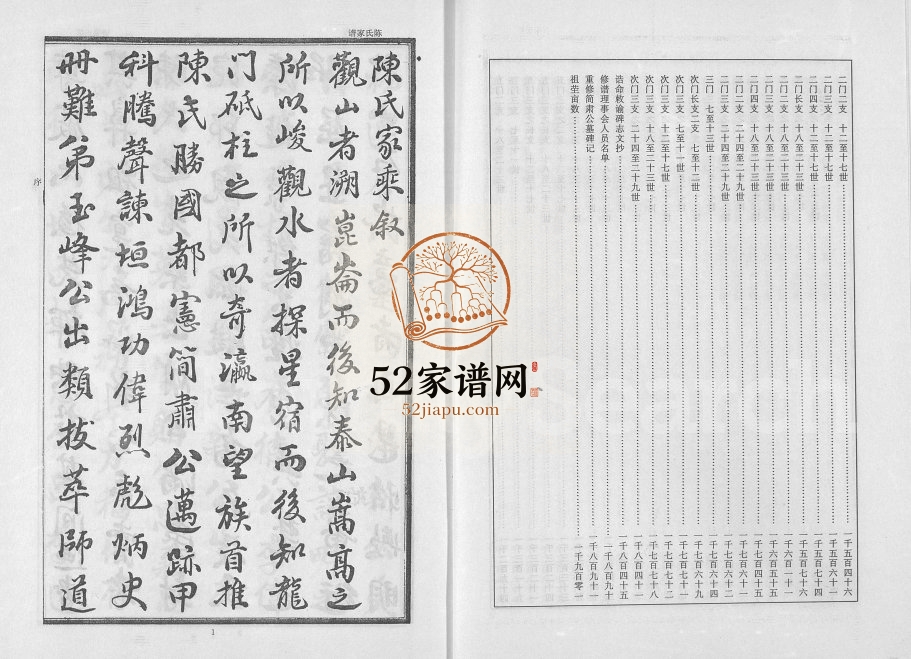 陈氏家谱
陳氏家乘叙
觀山者溯崑崙而後知泰山嵩高之
所以峻觀水者探星宿而後知龍
门砥柱之所以奇瀛南望族首推
陳氏勝國都憲简肅公邁跡甲
科騰聲諫垣鴻功偉烈彪炳史
冊難弟玉峰公出類拔萃師道
序
1
二门二支 十二至十七世 一千五百四十六
二门三支 十二至十七世 一千五百六十一
二门四支 十二至十七世
二门长支 十八至二十三世 一千五百七十六
二门二支 十八至二十三世 一千六百一十一
二门三支 十八至二十三世 一千六百五十五
二门四支 十八至二十三世
二门二支 二十四至二十九世
二门三支 二十四至二十九世 一千七百六十二
三门 七至十三世 一千七百六十四
次门长支二支 七至十二世 一千七百六十九
次门三支 七至十一世 一千七百七十一
次门三支 十二至十七世 一千七百七十二
次门三支 十八至二十三世 一千七百七十八
次门三支 二十四至二十九世 一千八百四十五
诰命敕谕碑志文抄
修谱理事会人员名单
重修简肃公墓碑记 一千八百九十一
祖茔亩数 一千九百零一
52家谱网
52jiapu.com